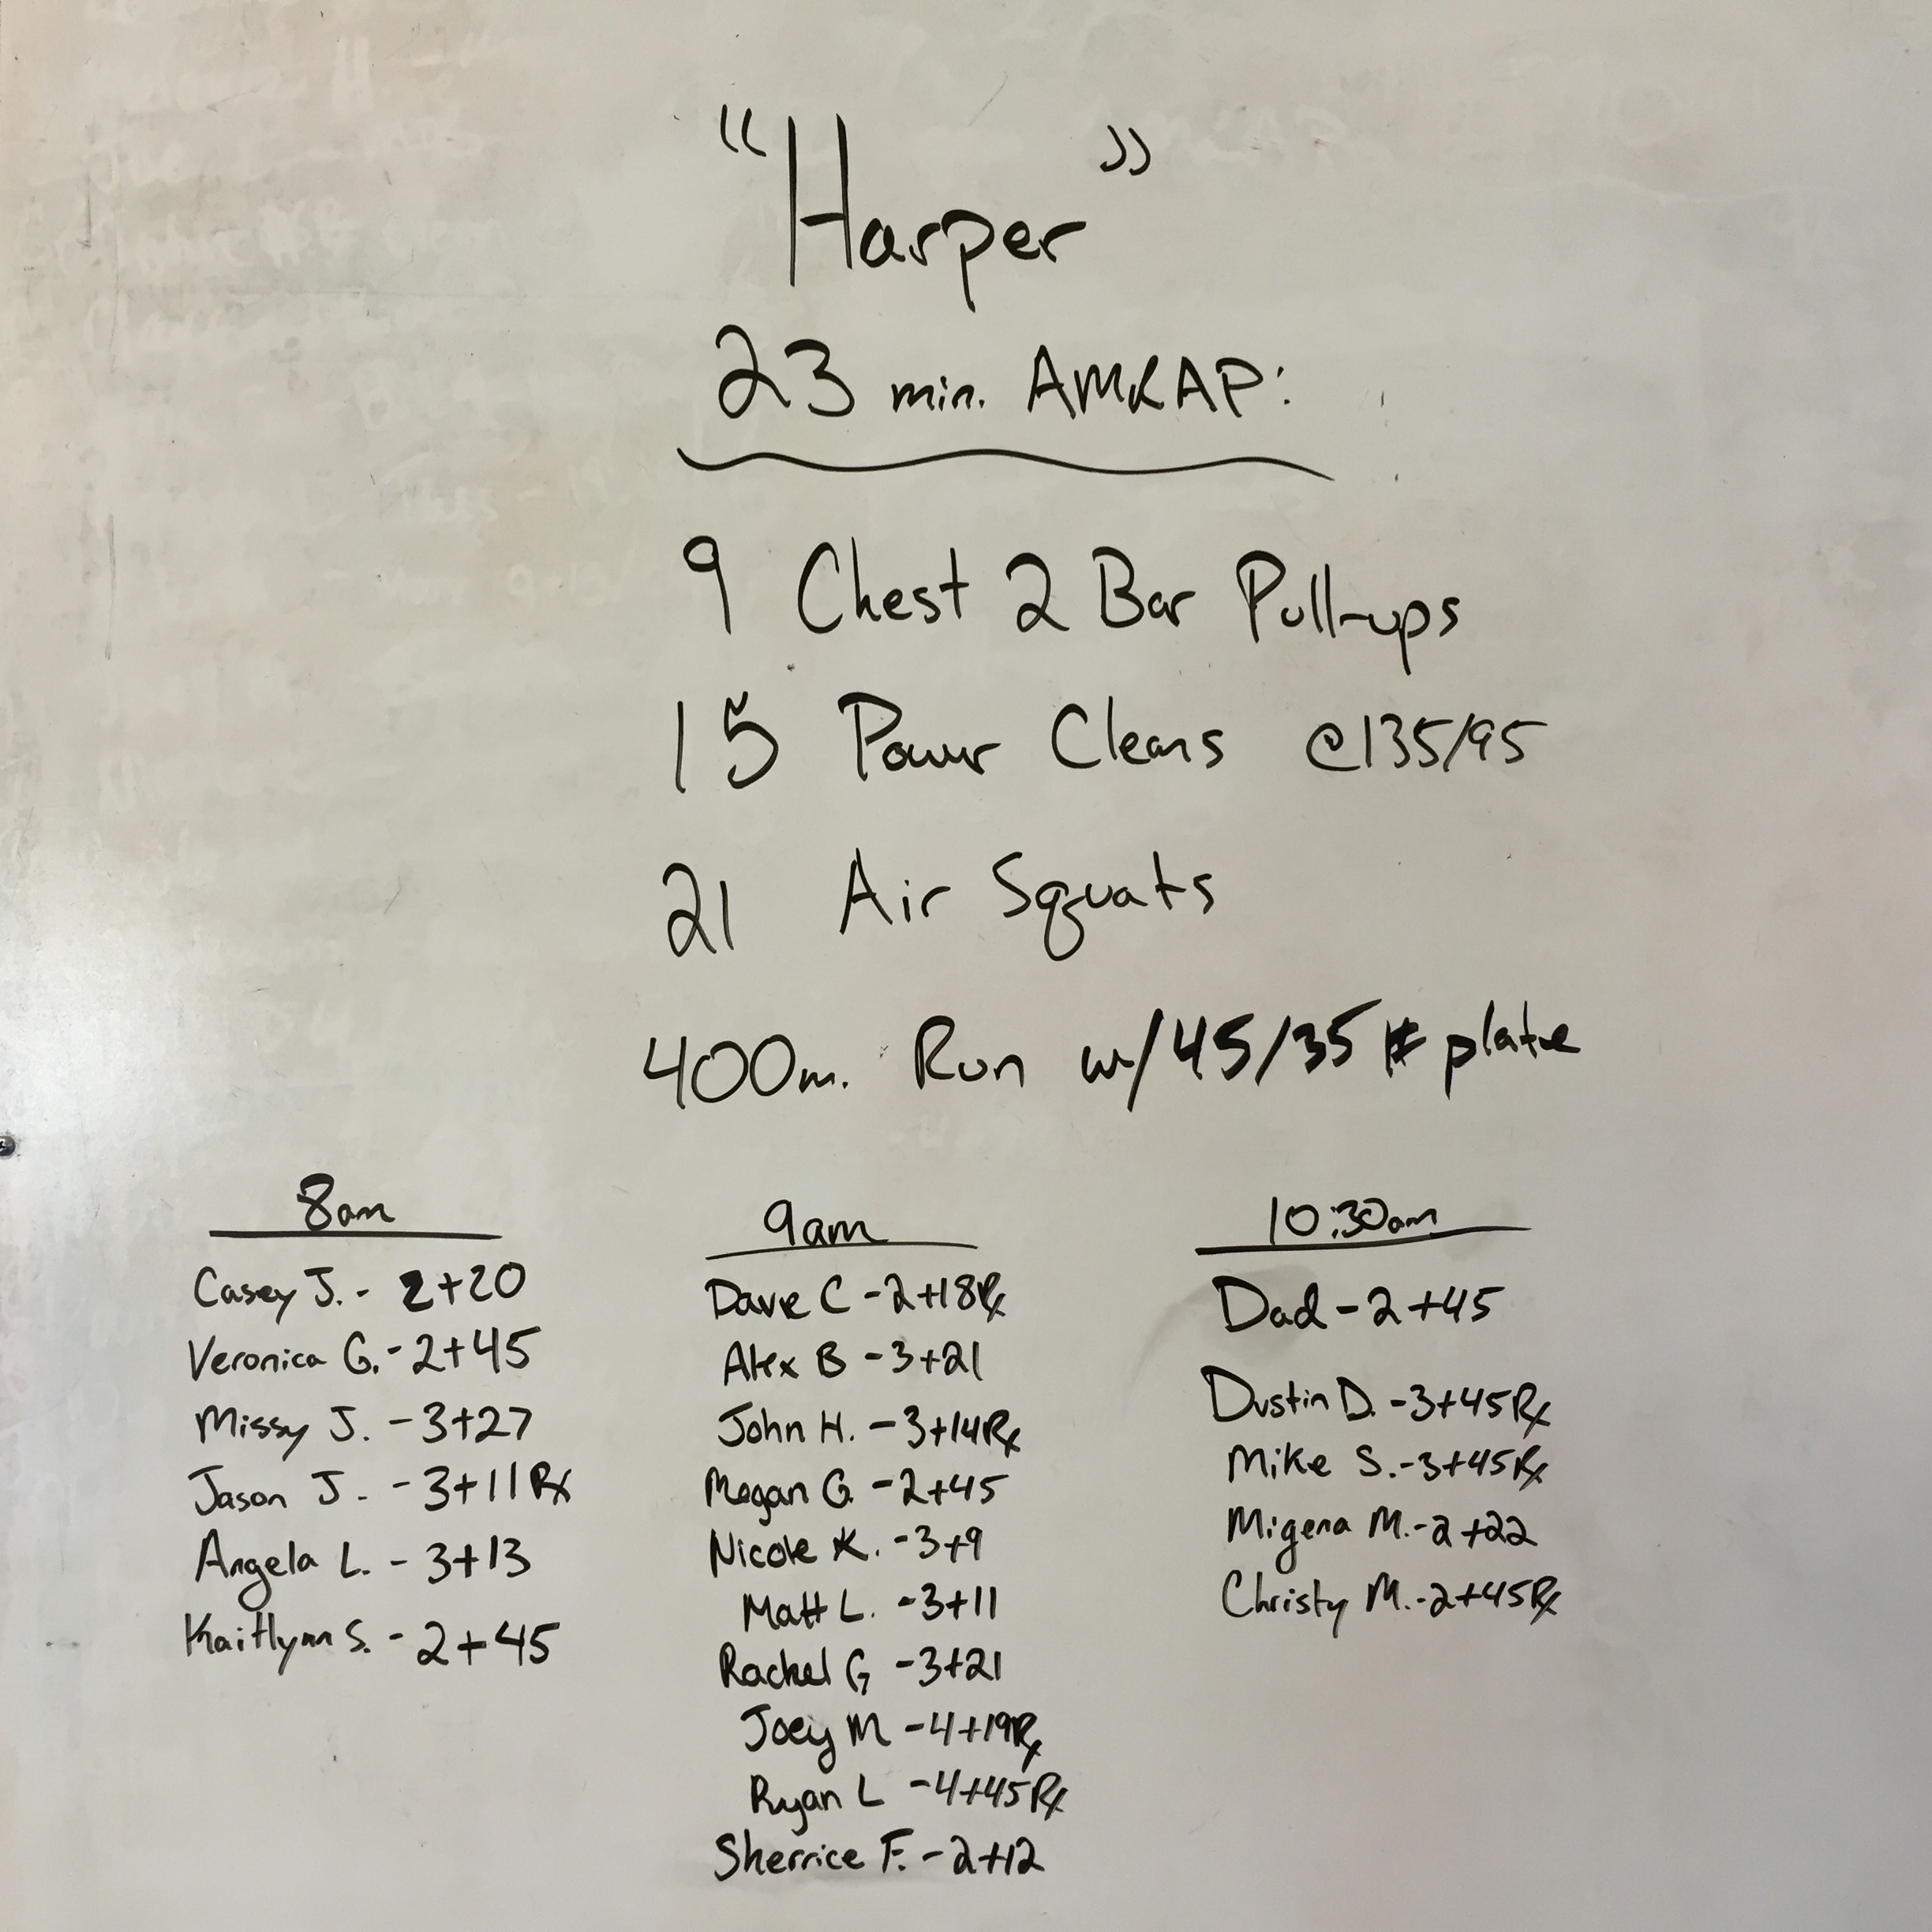 "Harper"
23 min. AMRAP:
9 Chest 2 Bar Pull-ups
15 Power Cleans @135/95
21 Air Squats
400m. Run w/45/35# plate
8am
Casey J. - 2+20
Veronica G. - 2+45
Missy J. - 3+27
Jason J. - 3+11 Rx
Angela L. - 3+13
Kaitlynn S. - 2+45
9am
Dave C - 2+18 Rx
Alex B - 3+21
John H. - 3+14 Rx
Megan G. - 2+45
Nicole K. - 3+9
Matt L. - 3+11
Rachel G - 3+21
Joey M - 4+19 Rx
Ryan L - 4+45 Rx
Sherrice F. - 2+12
10:30am
Dad - 2+45
Dustin D. - 3+45 Rx
Mike S. - 3+45 Rx
Migena M. - 2+22
Christy M. - 2+45 Rx